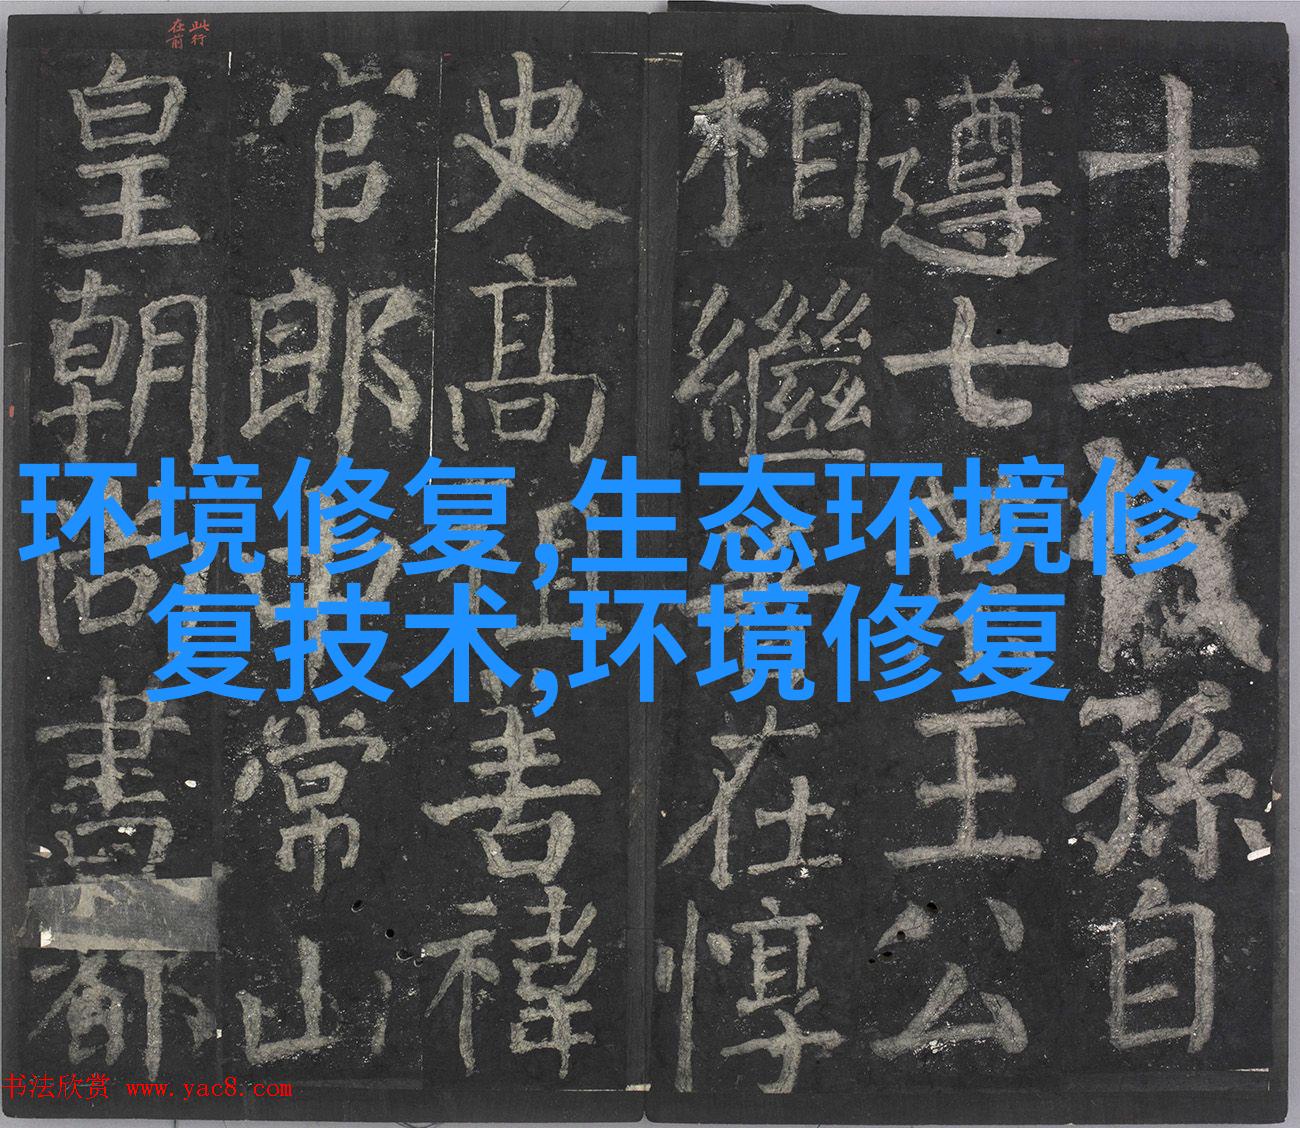 此行
在前
十二孫自
遵七王公
相繼在惇
史高禕
官郎常山
皇朝都
环境修复,生态环境修
复技术,环境修复
书法欣赏 www.yac8.com